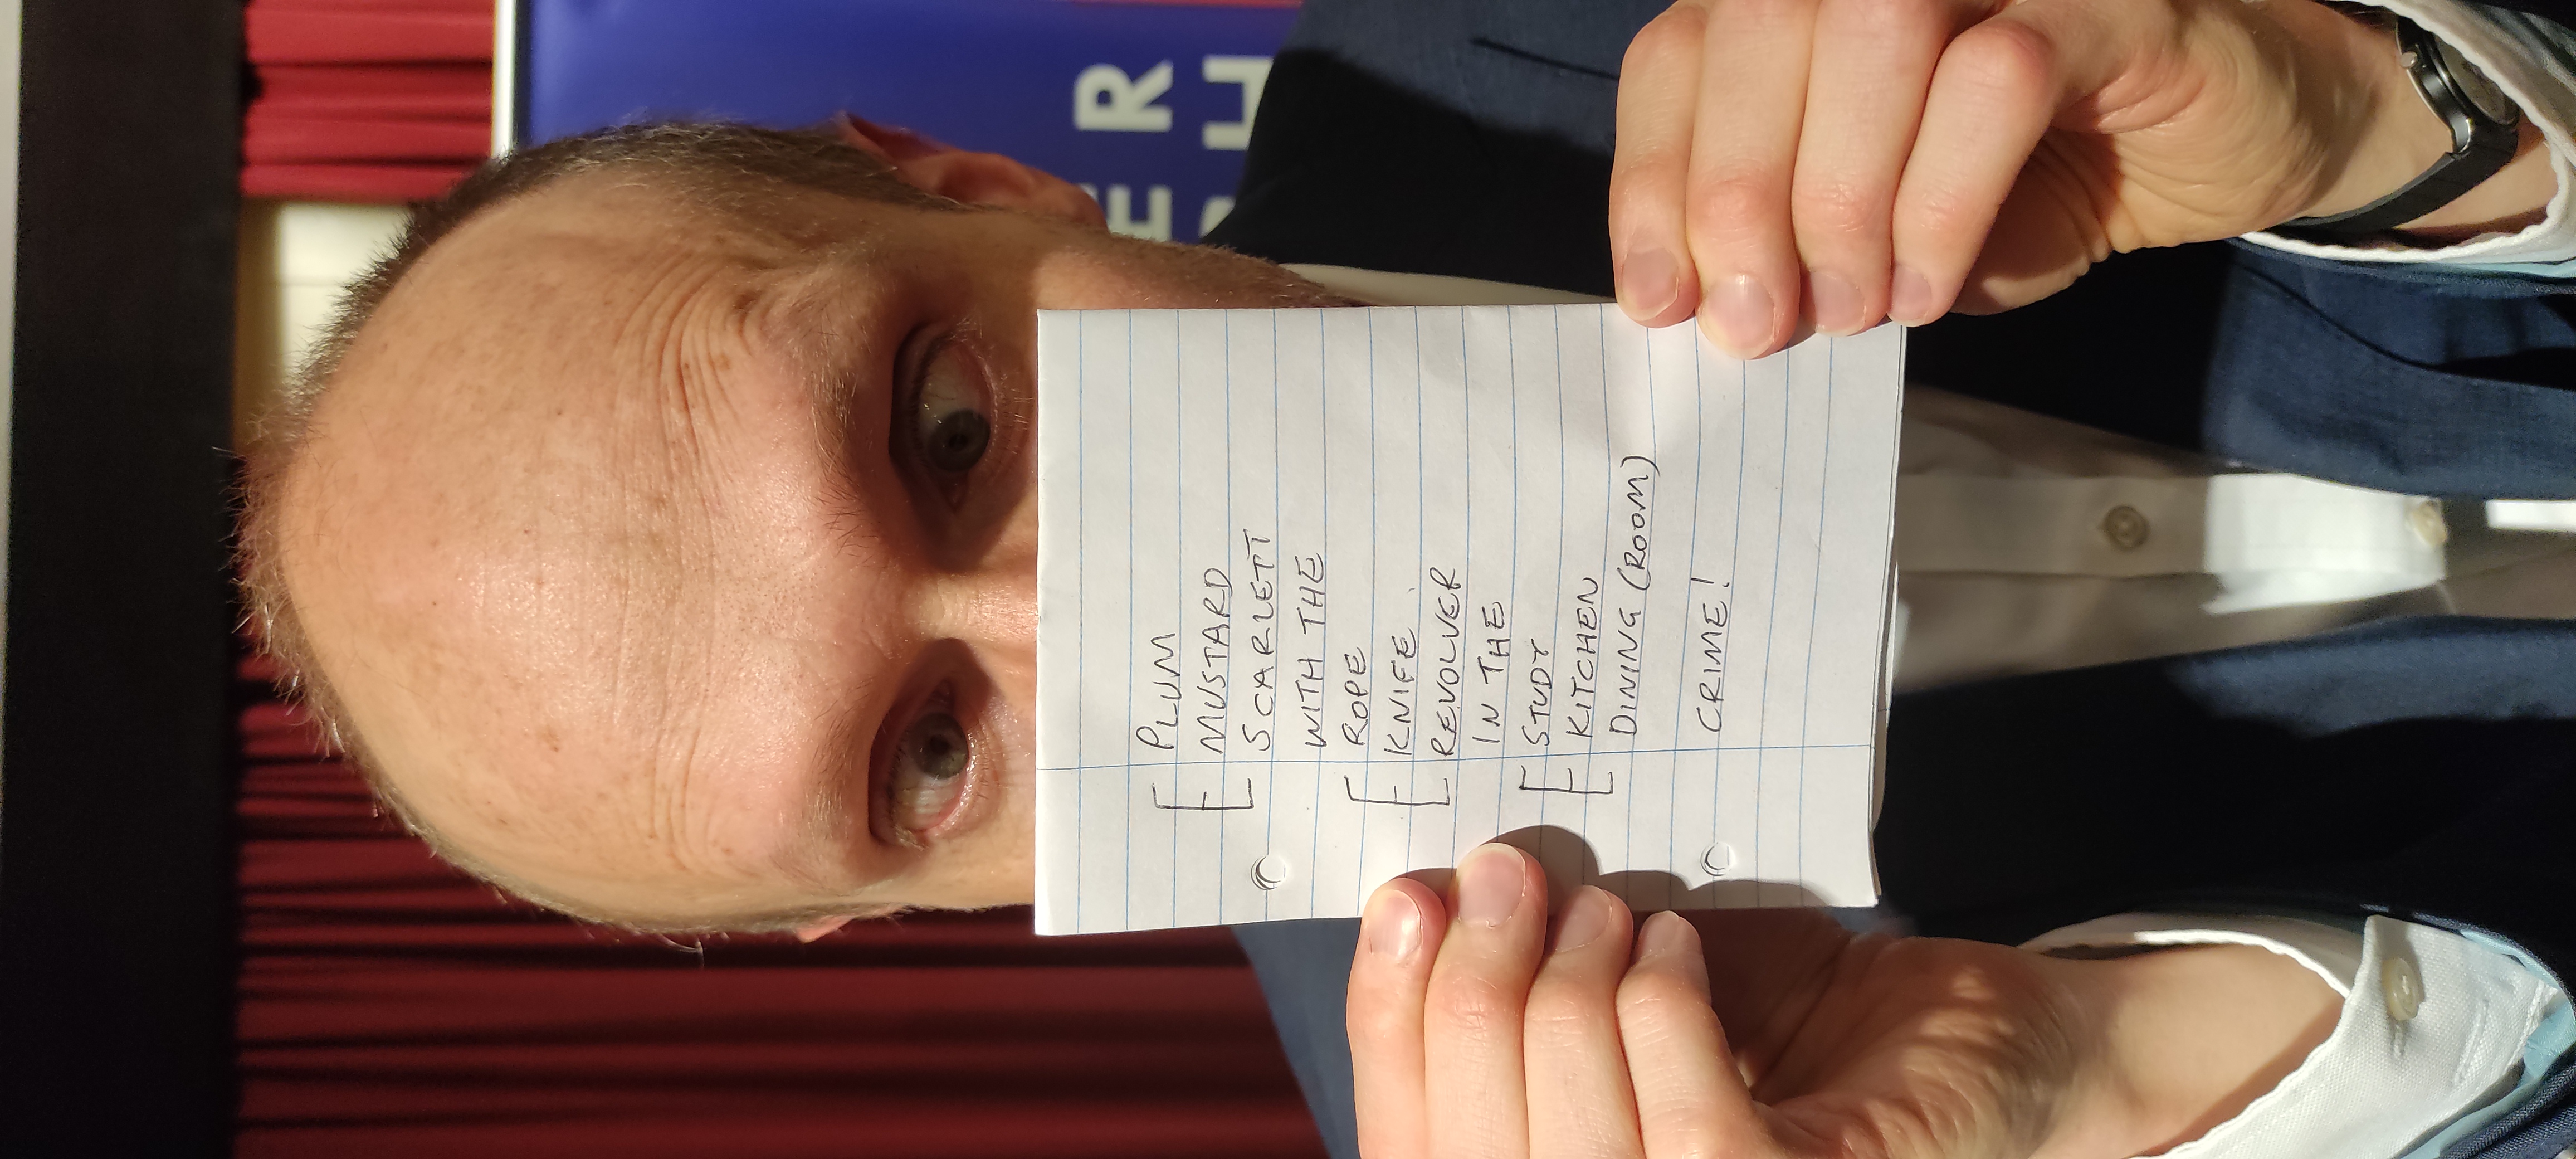 ER
PLUM
MUSTARD
SCARLETT
WITH THE
ROPE
KNIFE
REVOLVER
IN THE
STUDY
KITCHEN
DINING (ROOM)
CRIME!